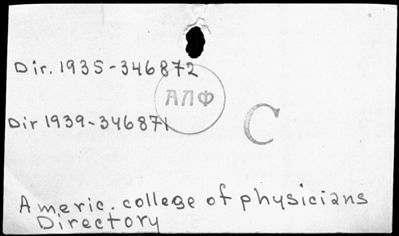 Dir. 1935-346872
АПФ
Dir 1939-346871
C
Americ. college of physicians
Directory